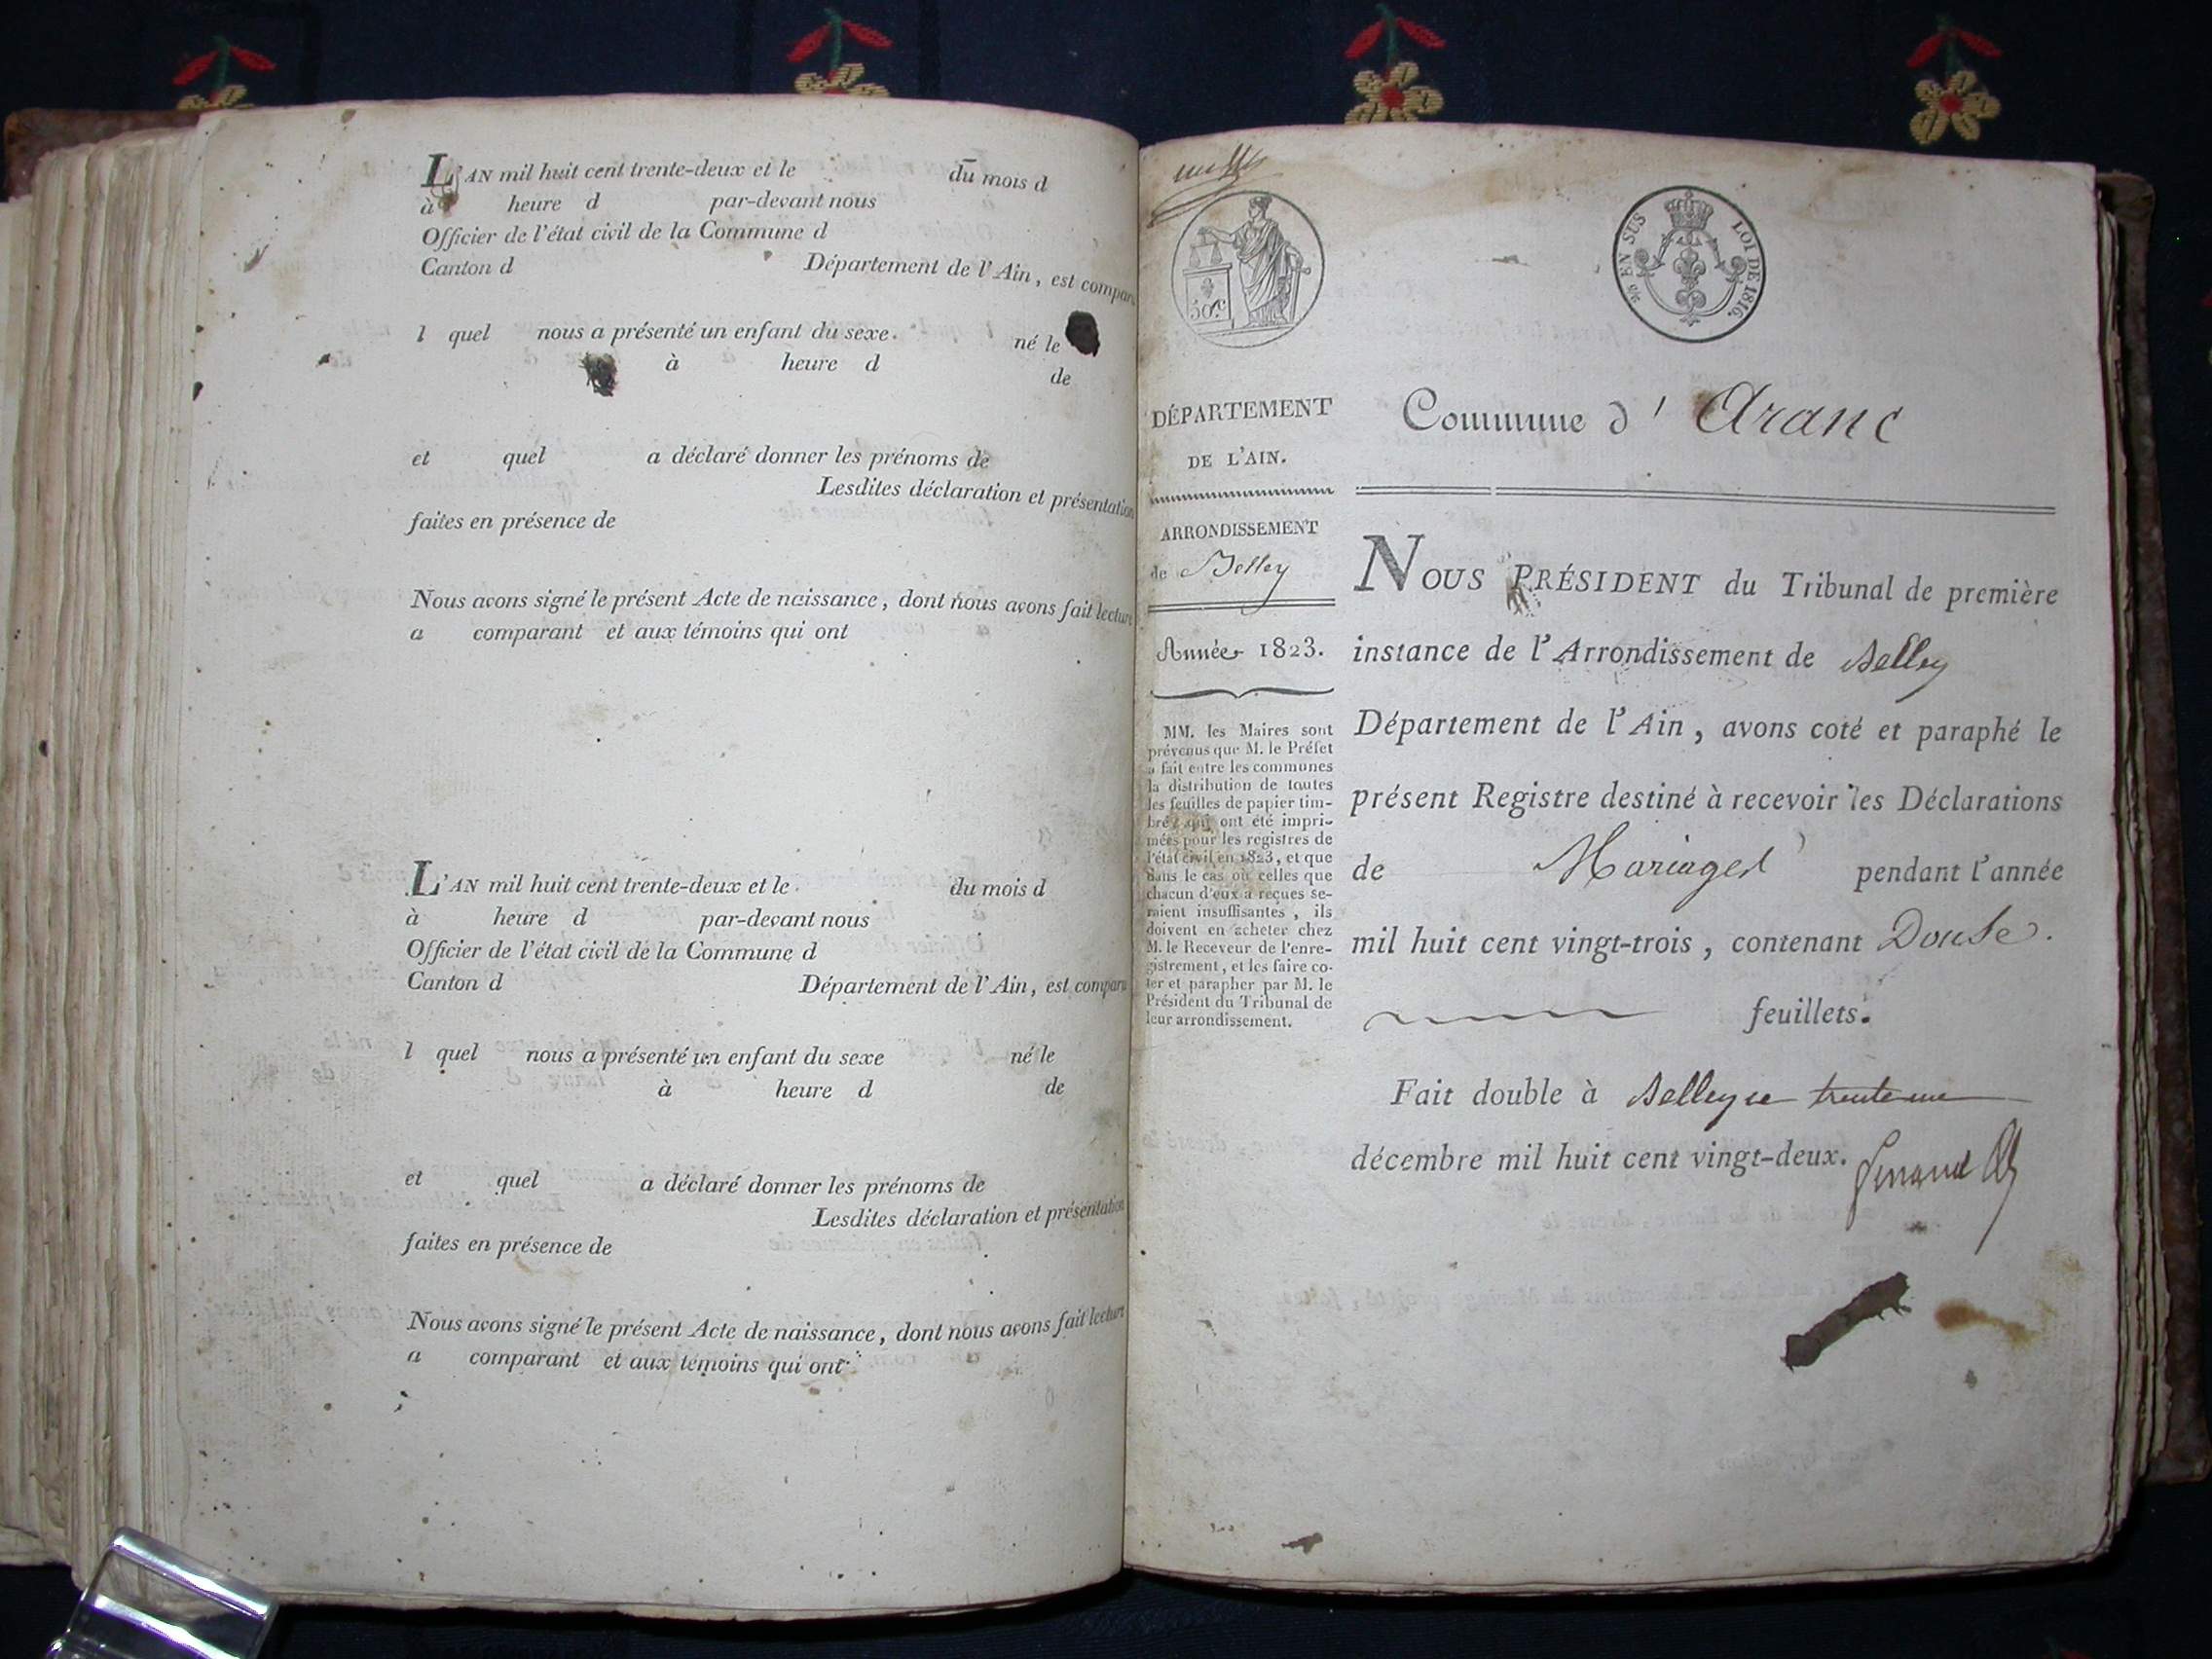 L'AN mil huit cent trente-deux et le du mois d
à heure d par-devant nous
Officier de l'état civil de la Commune d
Canton d Département de l'Ain, est comparu
l quel nous a présenté un enfant du sexe né le
à heure d de
et quel a déclaré donner les prénoms de
Lesdites déclaration et présentation
faites en présence de
Nous avons signé le présent Acte de naissance, dont nous avons fait lecture
a comparant et aux témoins qui ont
L'AN mil huit cent trente-deux et le du mois d
à heure d par-devant nous
Officier de l'état civil de la Commune d
Canton d Département de l'Ain, est comparu
l quel nous a présenté un enfant du sexe né le
à heure d de
et quel a déclaré donner les prénoms de
Lesdites déclaration et présentation
faites en présence de
Nous avons signé le présent Acte de naissance, dont nous avons fait lecture
a comparant et aux témoins qui ont
50 c
EN SUS LOI DE 1816.
DÉPARTEMENT
DE L'AIN.
ARRONDISSEMENT
de Belley
Année 1823.
MM. les Maires sont
prévenus que M. le Préfet
a fait entre les communes
la distribution de toutes
les feuilles de papier tim-
bré qui ont été impri-
mées pour les registres de
l'état civil en 1823, et que
dans le cas où celles que
chacun d'eux a reçues se-
raient insuffisantes, ils
doivent en acheter chez
M. le Receveur de l'enre-
gistrement, et les faire co-
ter et parapher par M. le
Président du Tribunal de
leur arrondissement.
Commune d' Aranc
NOUS PRÉSIDENT du Tribunal de première
instance de l'Arrondissement de Belley
Département de l'Ain, avons coté et paraphé le
présent Registre destiné à recevoir les Déclarations
de Mariages pendant l'année
mil huit cent vingt-trois, contenant Douse.
feuillets.
Fait double à Belley le trente un
décembre mil huit cent vingt-deux.